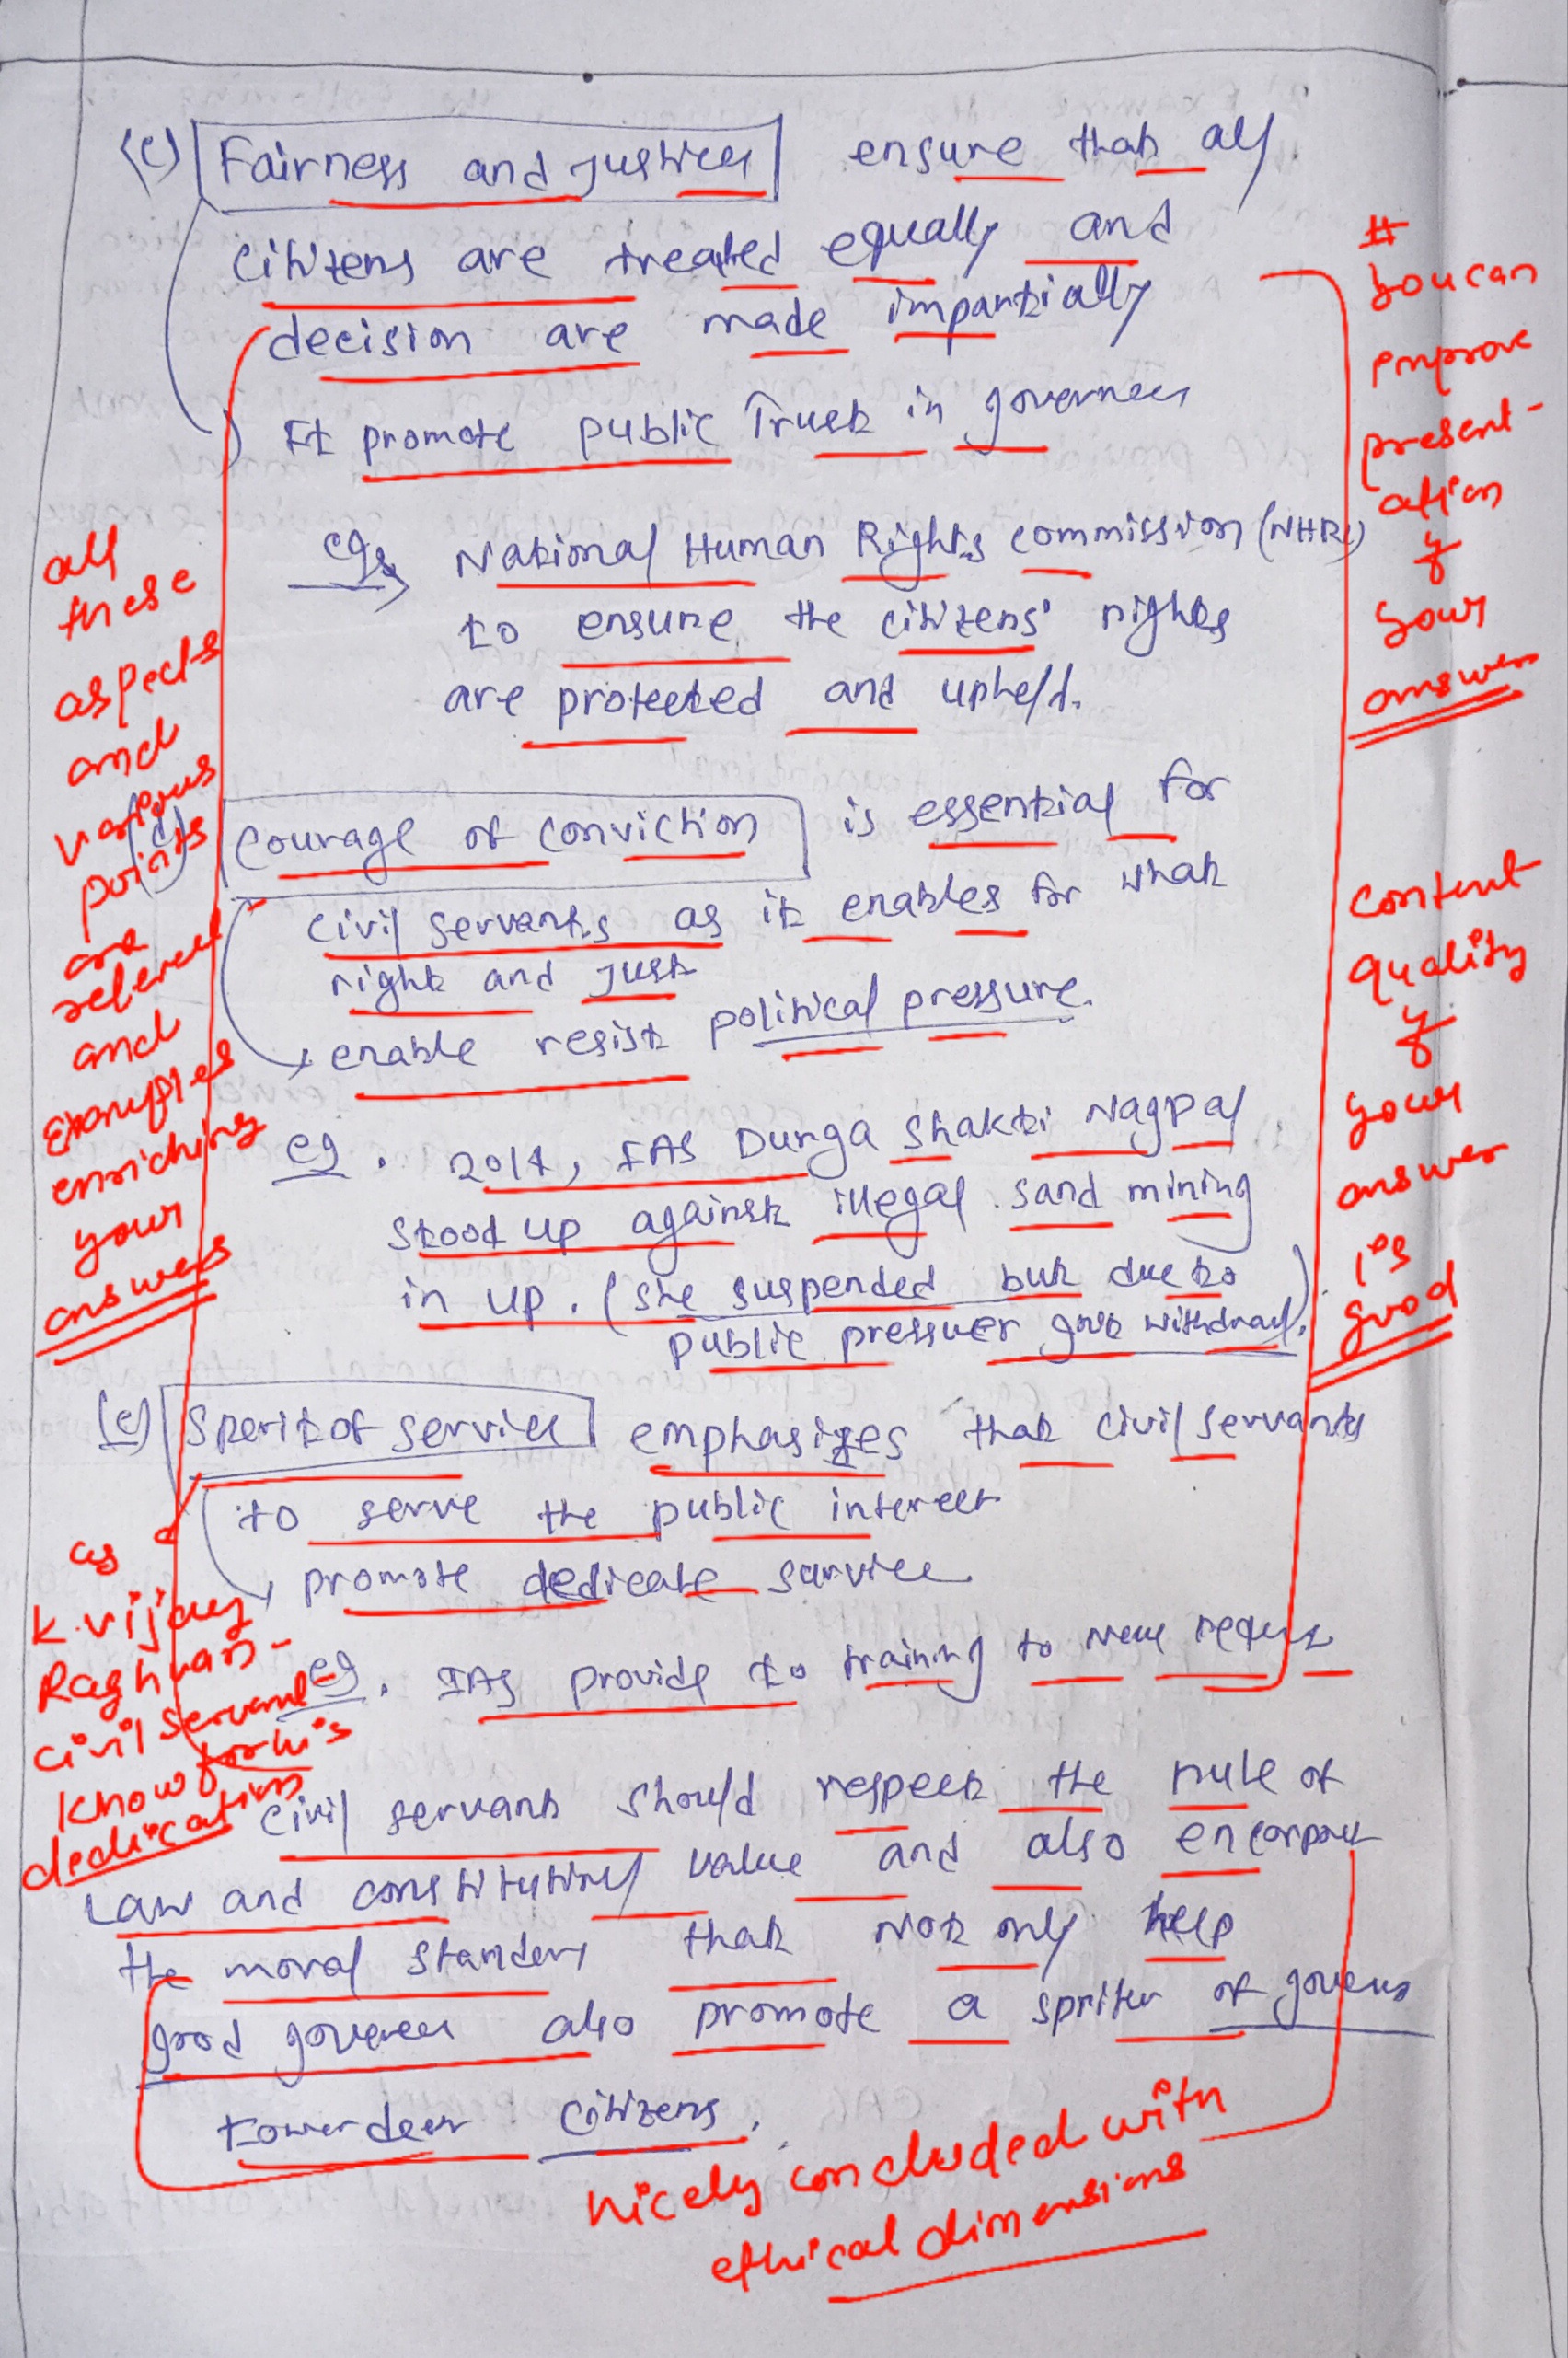 (c) Fairness and Justice ensure that all
citizens are treated equally and
decision are made impartially
It promote public Trust in governece
eg. National Human Rights Commission (NHRC)
to ensure the citizens' rights
are protected and upheld.
(d) Courage of conviction is essential for
civil servants as it enables for what
right and just
enable resist political pressure.
eg. 2014, IAS Durga Shakti Nagpal
stood up against illegal sand mining
in UP. (she suspended but due to
public pressuer govt withdrawl.)
(e) Sperit of service emphasizes that civil servants
to serve the public interest
promote dedicate service
eg. IAS provide to training to new
civil servant should respect the rule of
Law and constitutional value and also
the moral standers that not only help
good goverence also promote a of
citizens.
all
these
aspects
and
various
points
are
relevent
and
Examples
enriching
your
answers
as
K. Vijay
Raghvan -
civil servant
know for his
dedication
#
You can
improve
present-
ation
of
your
answer
Content
quality
of
your
answer
is
good
Nicely concluded with
ethical dimensions